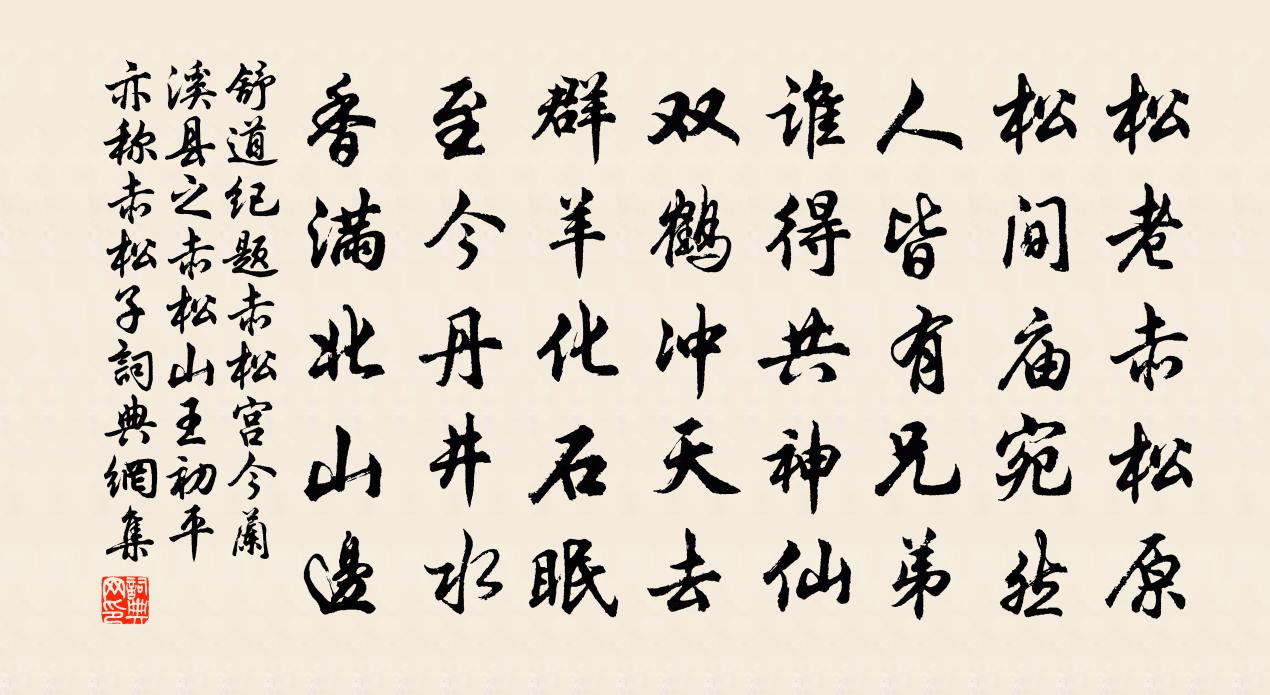 松老赤松原
松间庙宛然
人皆有兄弟
谁得共神仙
双鹤冲天去
群羊化石眠
至今丹井水
香满北山邊
舒道纪题赤松宫今蘭
溪县之赤松山王初平
亦称赤松子詞典網集
詞典网印